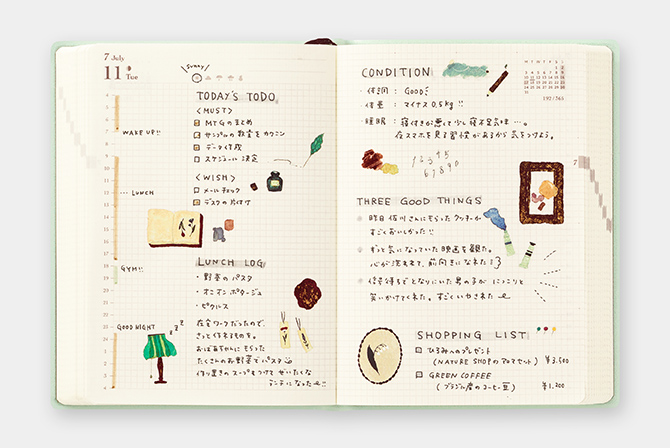 7 July
11 Tue
Sunny
4
6
WAKE UP!!
8
9
10
11
LUNCH
12
13
14
15
16
17
18
GYM!!
19
20
21
22
23
GOOD NIGHT
24
zzz
TODAY'S TODO
<MUST>
MTGのまとめ
サンプルの数量をカクニン
データ作成
スケジュール決定
<WISH>
メールチェック
デスクの片付け
LUNCH LOG
・野菜のパスタ
・オニオンポタージュ
・ピクルス
在宅ワークだったので、
さっと作れるものを。
おばあちゃんにもらった
たくさんのお野菜でパスタ
作り置きのスープもつけて ぜいたくな
ランチになった!!
CONDITION
・体調 : GOOD
・体重 : マイナス 0.5kg!!
・睡眠 : 寝付きが悪くて少し寝不足気味…。
夜スマホを見る習慣があるから気をつけよう。
M T W T F S S
192/365
7
1 2 3 4 5
6 7 8 9 0
THREE GOOD THINGS
昨日 佐川さんにもらったクッキーが
すごくおいしかった!!
ずっと気になっていた映画を観た。
心が洗われて、前向きになれた!
信号待ちでとなりにいた男の子が にっこりと
笑いかけてくれた。すごくいやされた
SHOPPING LIST
ひろみへのプレゼント
(NATURE SHOPのアロマセット) ¥3,500
GREEN COFFEE
(ブラジル産のコーヒー豆) ¥1,200